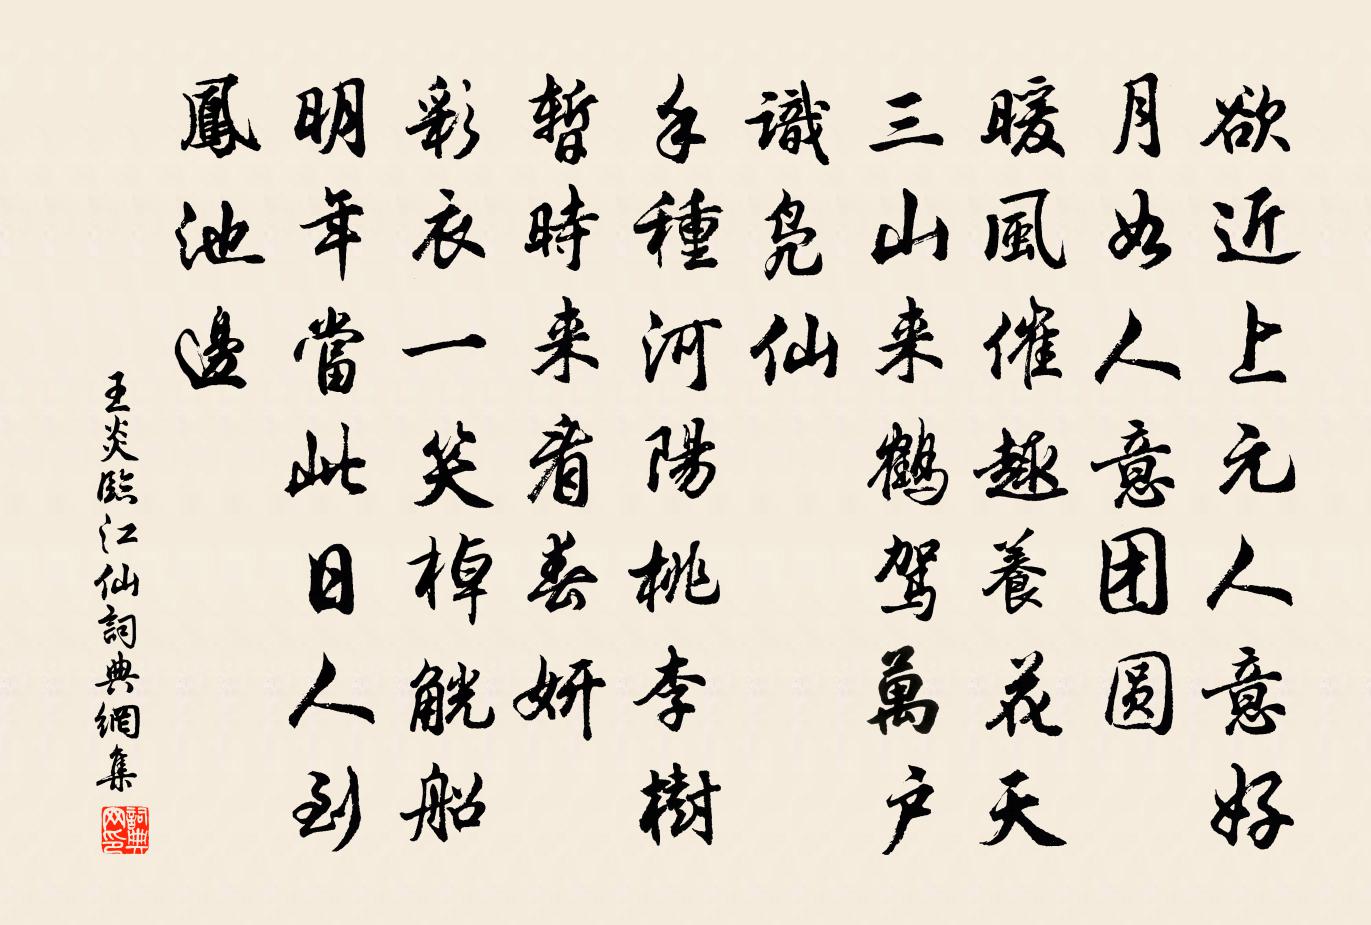 欲近上元人意好
月如人意团圆
暖風催趣養花天
三山来鶴駕萬户
識凫仙
手種河陽桃李樹
暫時来看春妍
彩衣一笑棹觥船
明年當此日人到
鳳池邊
王炎臨江仙詞典網集
詞典网印